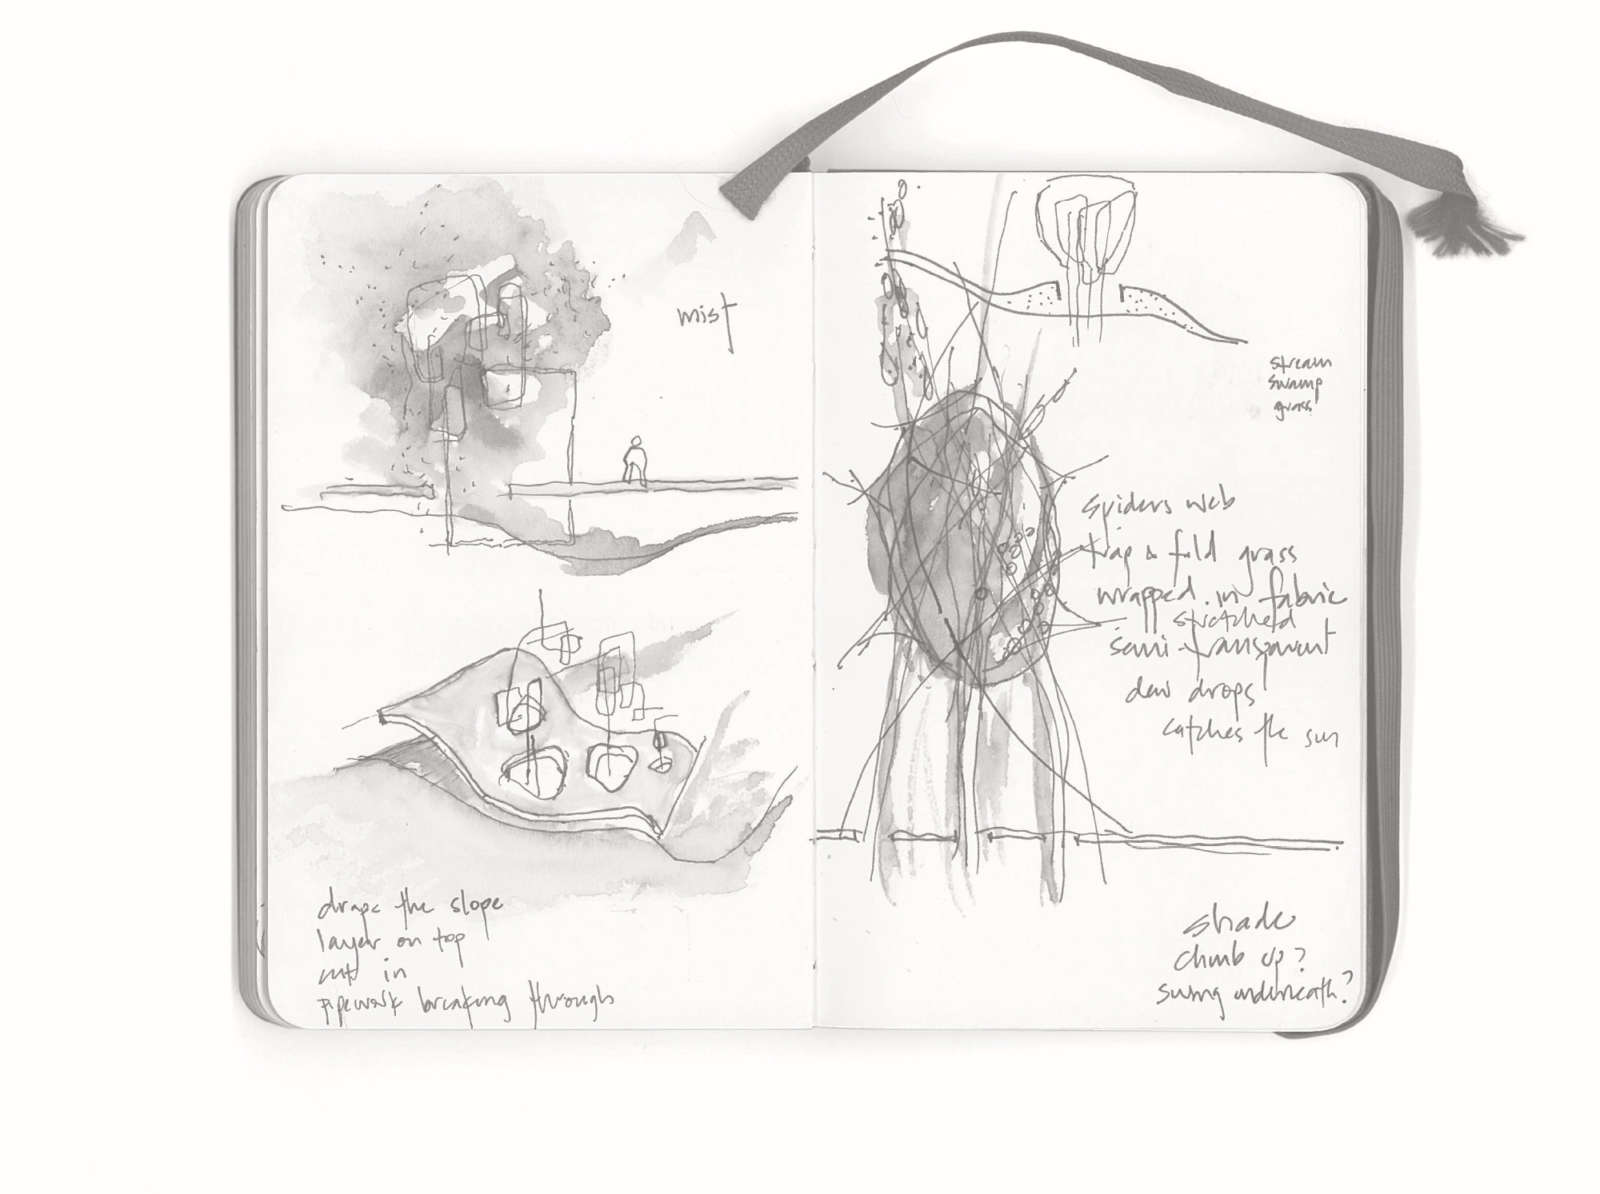 mist
drape the slope
layer on top
cuts in
pipework breaking through
stream
swamp
grass
spiders web
trap & fold grass
wrapped in fabric
stretched
semi-transparent
dew drops
catches the sun
shade
climb up?
swing underneath?